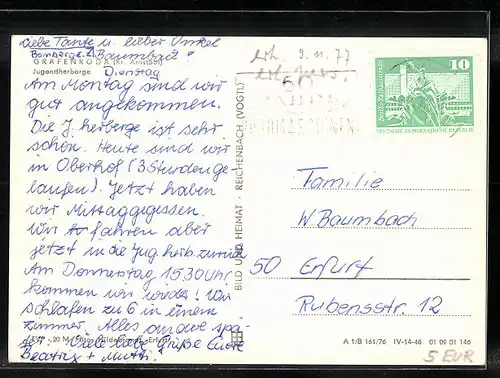 Liebe Tante u. lieber Onkel
GRÄFENRODA (Kr. Arnstadt)
Jugendherberge
Dienstag
Am Montag sind wir
gut angekommen.
Die J. herberge ist sehr
schön. Heute sind wir
in Oberhof (3 Stunden ge-
laufen). Jetzt haben
wir Mittag gegessen.
Wir fahren aber
jetzt in die Jug. herb. zurück
Am Donnerstag 15.30 Uhr
kommen wir wieder! Wir
schlafen zu 6 in einem
Zimmer. Alles andre spä-
ter. Viele liebe Grüße Eure
Beatrix + Mutti!
20 M Fotos Hildebrandt, Erfurt
BILD UND HEIMAT · REICHENBACH (VOGTL)
erh. 9.11.77
10
DEUTSCHE DEMOKRATISCHE REPUBLIK
Familie
W Baumbach
50 Erfurt
Rubensstr. 12
A 1/B 161/76 IV-14-48 01 09 01 146
5 EUR